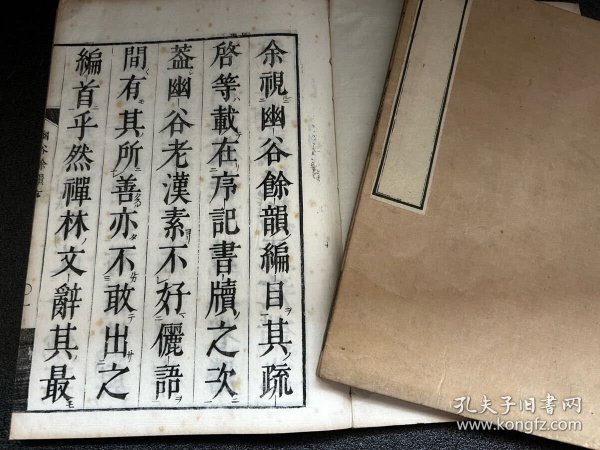 余視幽谷餘韻編目其疏
啓等載在序記書牘之次
蓋幽谷老漢素不好儷語
間有其所善亦不敢出之
編首乎然禪林文辭其最
孔夫子旧书网
www.kongfz.com